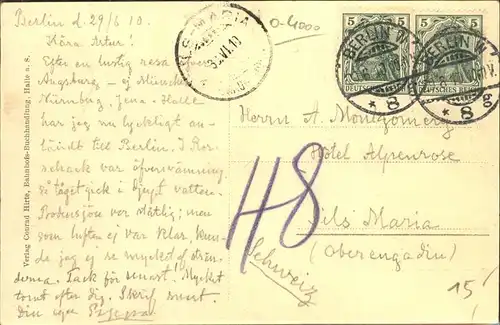 Berlin d. 29/6 10.
Kära Artur!
Efter en lustig resa öfver
Augsburg – ej München –
Nürnburg, Jena – Halle
har jag nu lyckligt an-
ländt till Berlin. I Ror-
schack var öfversvämning
så tåget gick i djupt vatten.
Bodensjön var måttlig; men
som luften ej var klar, kun-
de jag ej se mycket af strän-
derna. Tack för senast. Mycket
tomt efter dig. Skrif snart.
Din egen Pappa.
Verlag Conrad Hirte, Bahnhofs-Buchhandlung, Halle a. S.
SILS-MARIA
30.VI.10
0-4000
5 5
DEUTSCHES REICH
5 5
DEUTSCHES REICH
BERLIN W.
* 8 g
BERLIN W.
* 8 g
Herrn A. Montgomery
Hôtel Alpenrose
Sils Maria
(Oberengadin)
Schweiz
48
15/